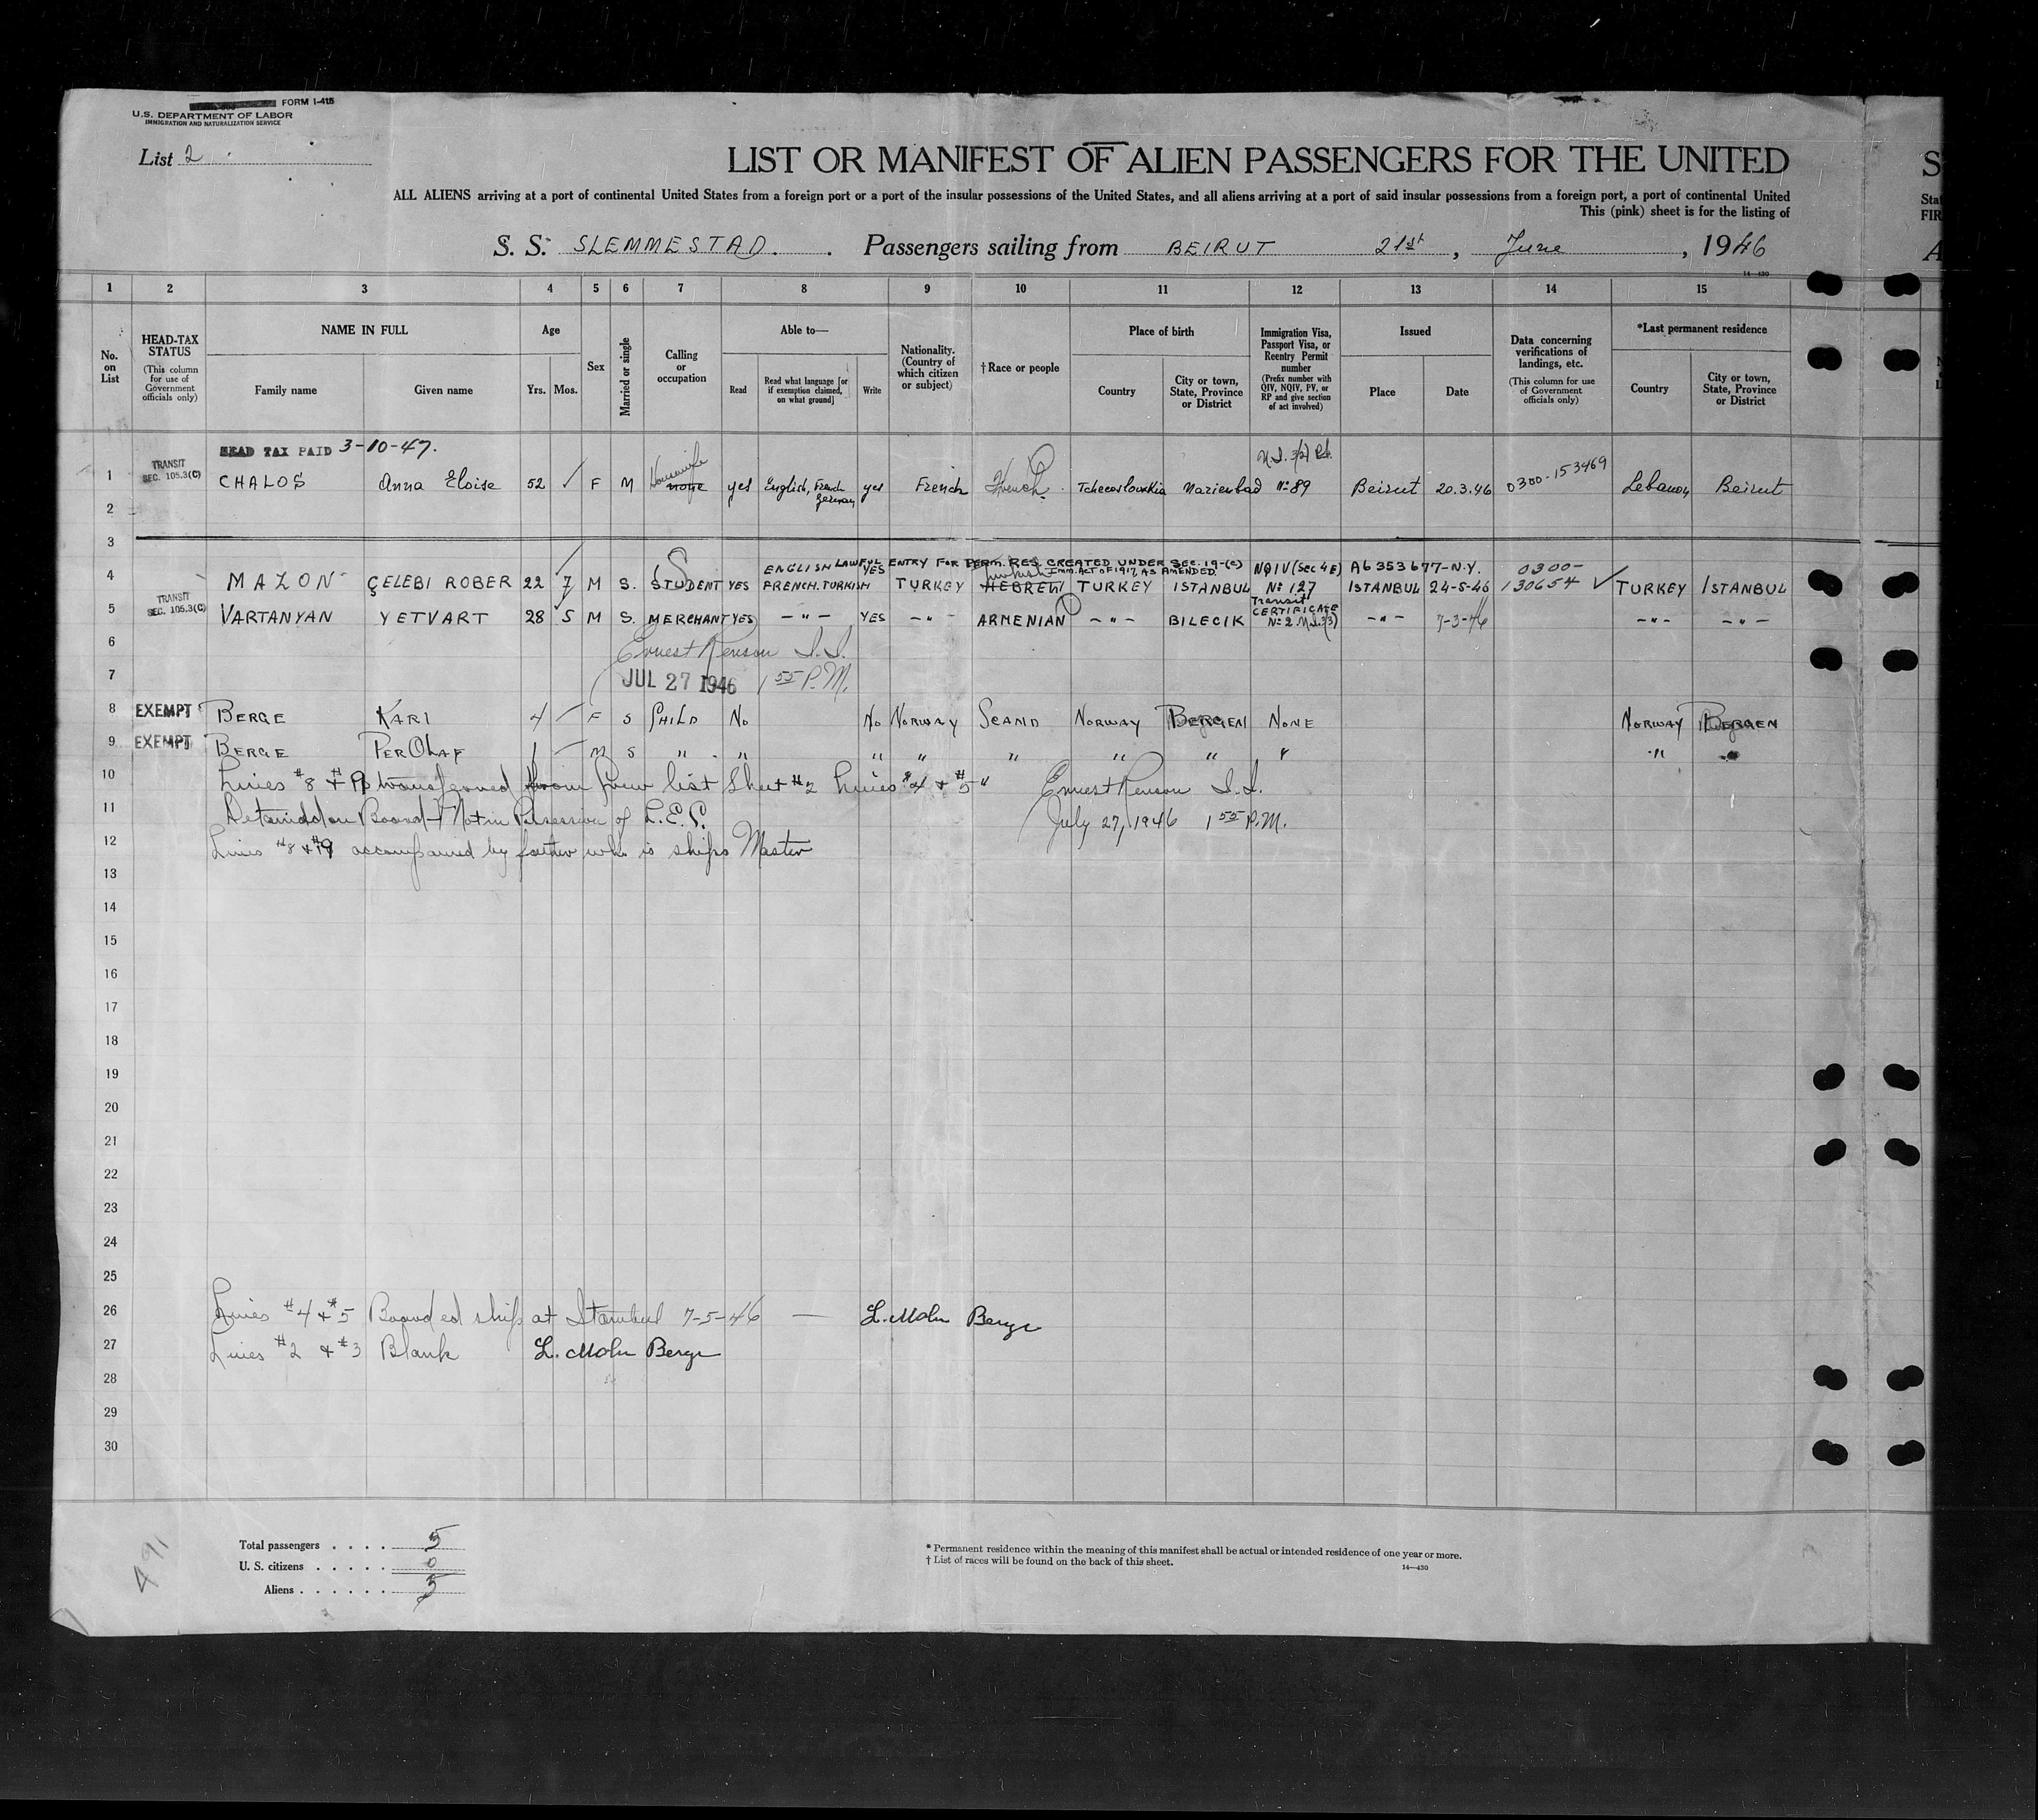 FORM I-415
U.S. DEPARTMENT OF LABOR
IMMIGRATION AND NATURALIZATION SERVICE
List 2
LIST OR MANIFEST OF ALIEN PASSENGERS FOR THE UNITED
S
ALL ALIENS arriving at a port of continental United States from a foreign port or a port of the insular possessions of the United States, and all aliens arriving at a port of said insular possessions from a foreign port, a port of continental United
Stat
This (pink) sheet is for the listing of
FIR
S. S. SLEMMESTAD. Passengers sailing from BEIRUT 21st, June, 1946
A
14—430
1 2 3 4 5 6 7 8 9 10 11 12 13 14 15
No. on List
HEAD-TAX STATUS (This column for use of Government officials only)
NAME IN FULL
Family name Given name
Age
Yrs. Mos.
Sex
Married or single
Calling or occupation
Able to—
Read Read what language [or if exemption claimed, on what ground] Write
Nationality. (Country of which citizen or subject)
†Race or people
Place of birth
Country City or town, State, Province or District
Immigration Visa, Passport Visa, or Reentry Permit number (Prefix number with QIV, NQIV, PV, or RP and give section of act involved)
Issued
Place Date
Data concerning verifications of landings, etc. (This column for use of Government officials only)
*Last permanent residence
Country City or town, State, Province or District
HEAD TAX PAID 3-10-47.
1 TRANSIT SEC. 105.3(C) CHALOS Anna Eloise 52 ✓ F M Housewife none yes English, French German yes French French Tchecoslovakia Marienbad Nº 89 Beirut 20.3.46 0300-153469 Lebanon Beirut
2
3
ENGLISH YES LAWFUL ENTRY FOR PERM. RES. CREATED UNDER SEC. 19-(c) IMM. ACT OF 1917, AS AMENDED. A6353677-N.Y.
4 MAZON ÇELEBI ROBER 22 7 M S. STUDENT YES FRENCH. TURKISH TURKEY Turkish HEBREW TURKEY ISTANBUL NQIV (SEC 4E) Nº 127 ISTANBUL 24-5-46 0300-130654 ✓ TURKEY ISTANBUL
5 TRANSIT SEC. 105.3(C) VARTANYAN YETVART 28 5 M S. MERCHANT YES -"- YES -"- ARMENIAN -"- BILECIK Transit CERTIFICATE Nº 2 -"- 7-3-46 -"- -"-
6 Ernest Renson I.I.
7 JUL 27 1946 1 55 P.M.
8 EXEMPT BERGE KARI 4 F S CHILD NO NO NORWAY SCAND NORWAY BERGEN NONE NORWAY BERGEN
9 EXEMPT BERGE PER OLAF 1 M S " " " " " " " " "
10 Lines #8 & #9 transferred from Crew list Sheet #2 Lines #4 & #5" Ernest Renson I.I.
11 Detained on Board - Not in Possession of July 27, 1946 1 55 P.M.
12 Lines #8 & #9 accompanied by father who is ships Master
13
14
15
16
17
18
19
20
21
22
23
24
25
26 Lines #4 & #5 Boarded ship at Istanbul 7-5-46 — L. Mohn Berge
27 Lines #2 & #3 Blank L. Mohn Berge
28
29
30
Total passengers . . . . 5
U. S. citizens . . . . . 0
Aliens . . . . . . 5
491
* Permanent residence within the meaning of this manifest shall be actual or intended residence of one year or more.
† List of races will be found on the back of this sheet.
14—430